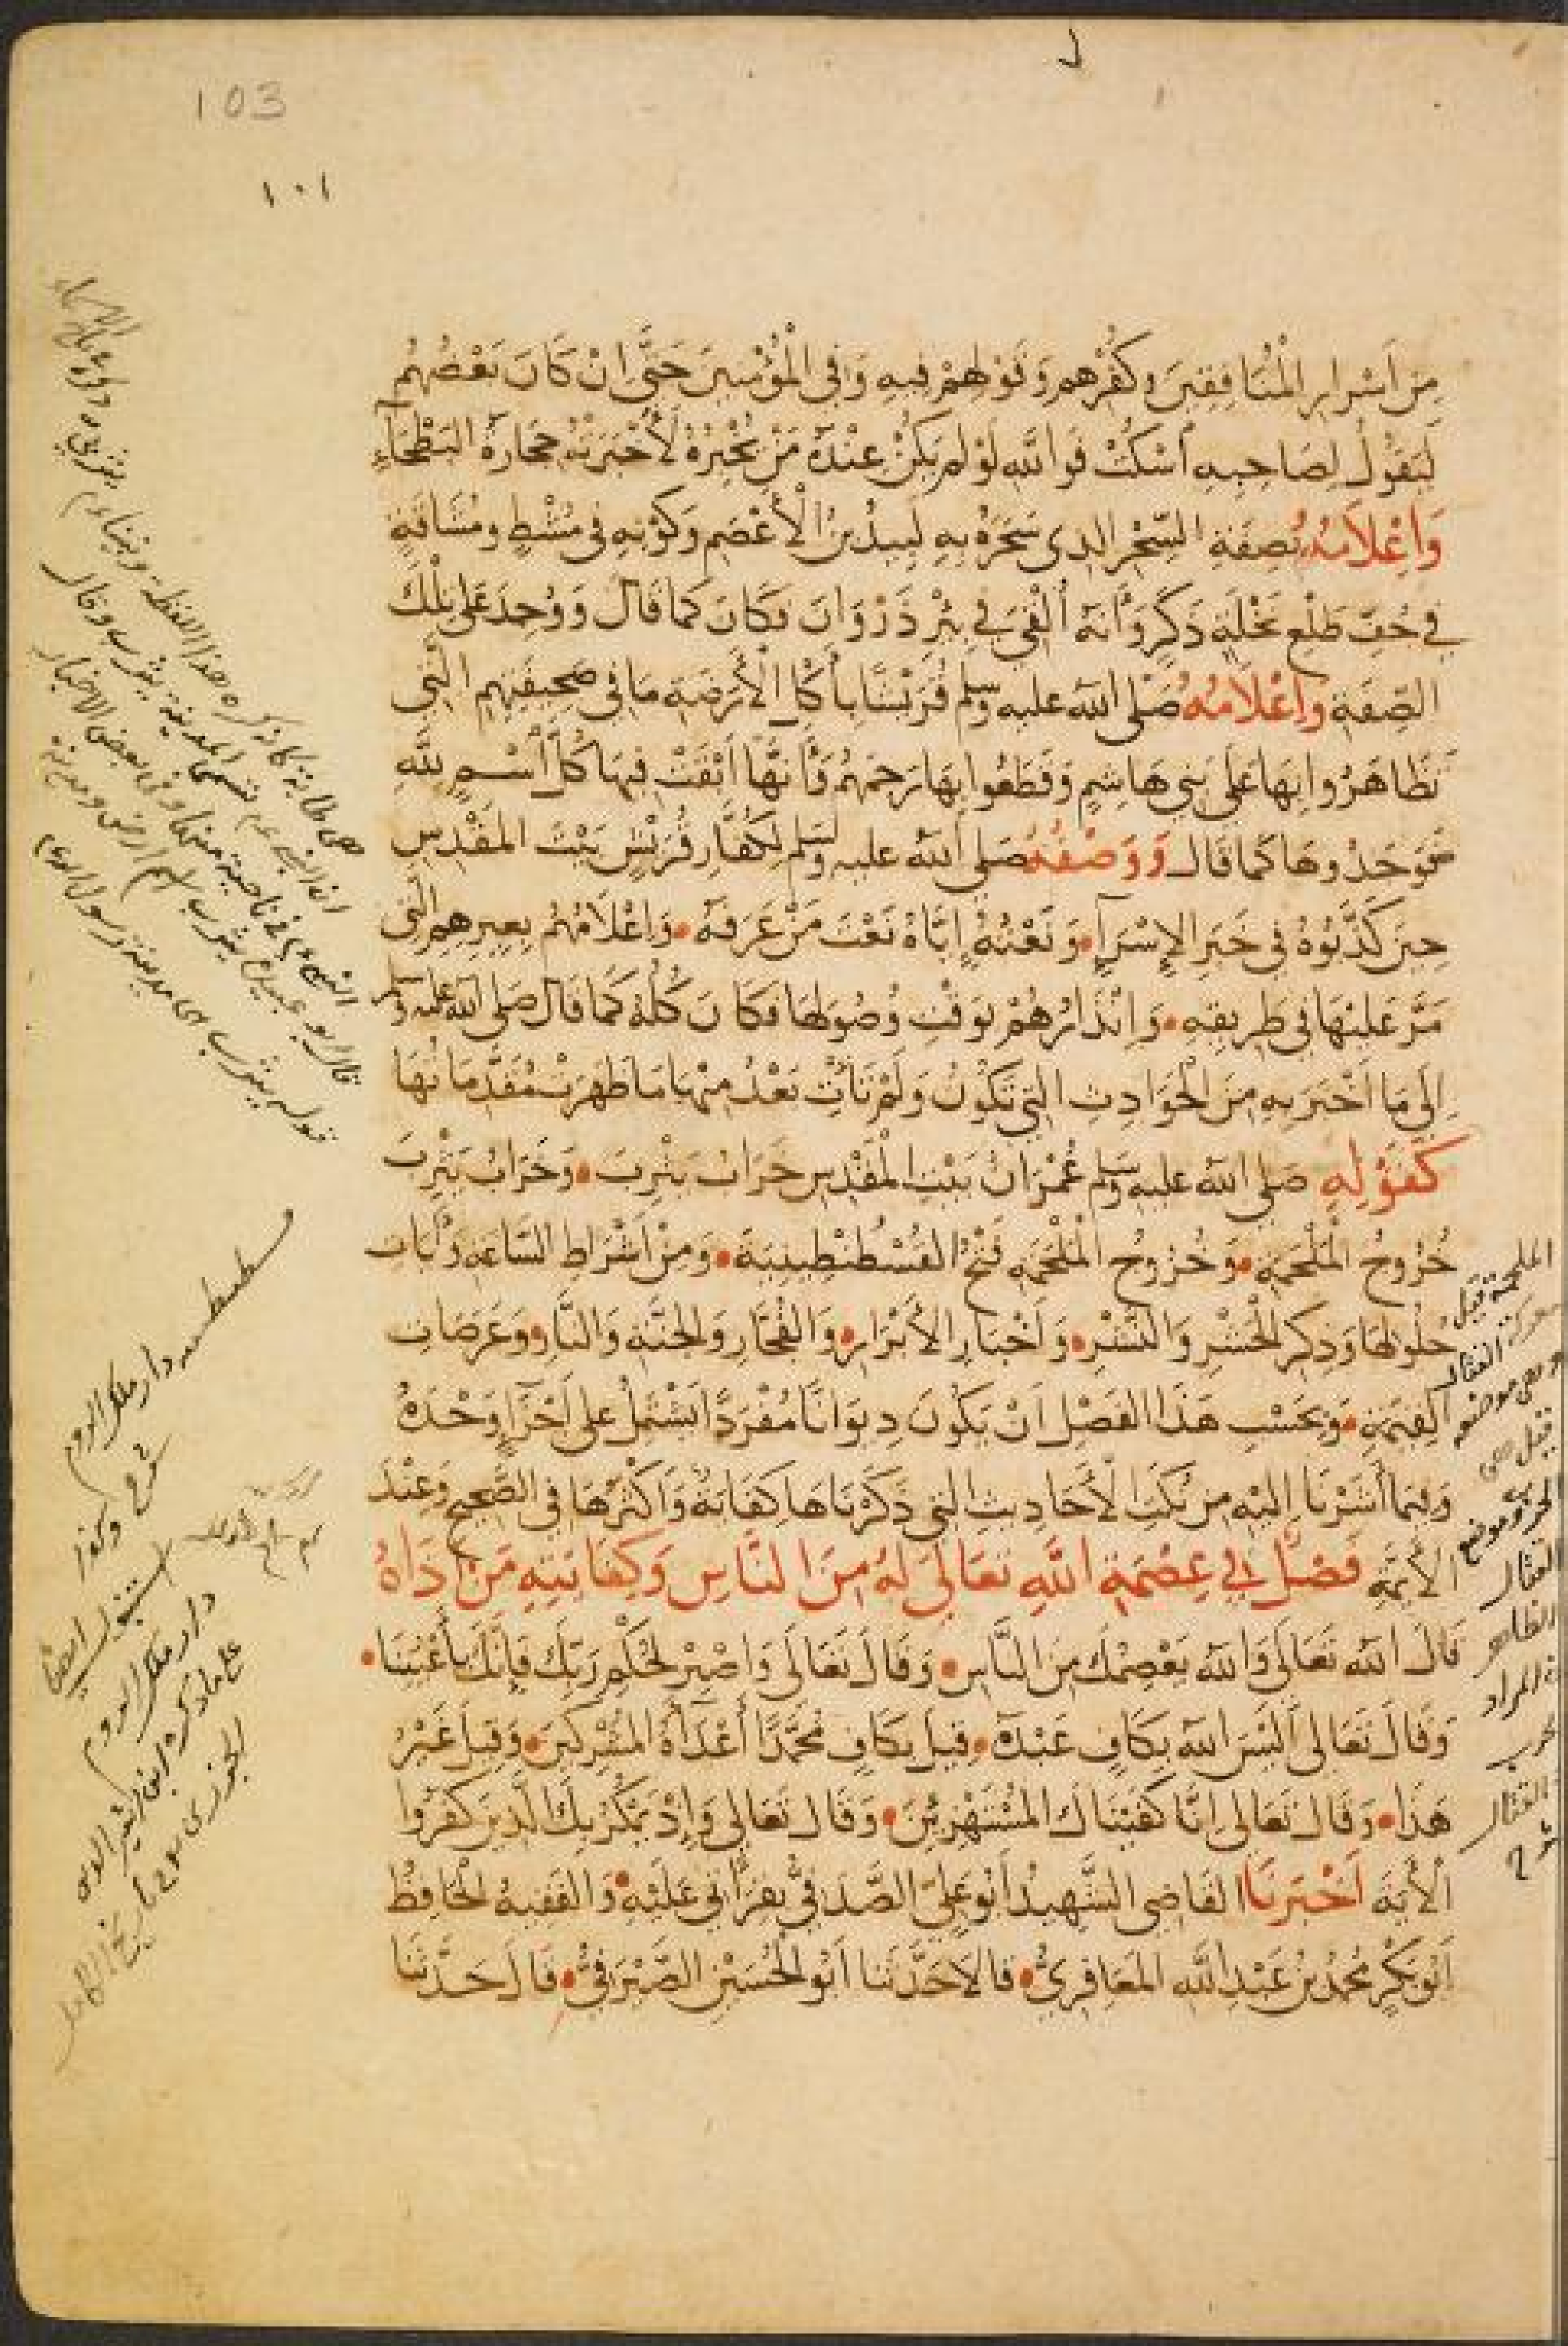 103
١٠١
مِنْ اَسْرَارِ الْمُنَافِقِينَ وَكُفْرِهِمْ وَقَوْلِهِمْ فِيهِ وَفِي الْمُؤْمِنِينَ حَتَّى اِنْ كَانَ بَعْضُهُمْ
لَيَقُولُ لِصَاحِبِهِ اُسْكُتْ فَوَاللهِ لَوْ لَمْ يَكُنْ عِنْدَهُ مَنْ يُخْبِرُهُ لَأَخْبَرَتْهُ حِجَارَةُ الْبَطْحَاءِ
وَاِعْلَامُهُ بِصِفَةِ السِّحْرِ الَّذِى سَحَرَهُ بِهِ لَبِيدُ بْنُ الْأَعْصَمِ وَكَوْنِهِ فِى مُشْطٍ وَمُشَاقَةٍ
فِي جُفِّ طَلْعِ نَخْلَةٍ ذَكَرٍ وَاَنَّهُ اُلْقِيَ فِي بِئْرِ ذَرْوَانَ فَكَانَ كَمَا قَالَ وَوُجِدَ عَلَى تِلْكَ
الصِّفَةِ وَاِعْلَامُهُ صَلَّى الله عليه وسلم قُرَيْشًا بِأَكْلِ الْأَرَضَةِ مَا فِى صَحِيفَتِهِمِ الَّتِي
تَظَاهَرُوا بِهَا عَلَى بَنِي هَاشِمٍ وَقَطَعُوا بِهَا رَحِمَهُمْ وَأَنَّهَا اَبْقَتْ فِيهَا كُلَّ اسْمٍ لِلّهِ
فَوَجَدُوهَا كَمَا قَالَ وَوَصْفُهُ صلى الله عليه وسلم لِكُفَّارِ قُرَيْشٍ بَيْتَ الْمَقْدِسِ
حِينَ كَذَّبُوهُ فِى خَبَرِ الإِسْرَآءِ وَنَعْتُهُ إِيَّاهُ نَعْتَ مَنْ عَرَفَهُ وَاِعْلَامُهُمْ بِعِيرِهِمِ الَّتِى
مَرَّ عَلَيْهَا فِي طَرِيقِهِ وَاِنْذَارُهُمْ بِوَقْتِ وُصُولِهَا فَكَانَ كُلُّهُ كَمَا قَالَ صَلى الله عليه وسلم
اِلَى مَا اَخْبَرَ بِهِ مِنَ الْحَوَادِثِ الَّتِي تَكُونُ وَلَمْ تَأْتِ بَعْدُ مِنْهَا مَا ظَهَرَتْ مُقَدِّمَاتُهَا
كَقَوْلِهِ صلى الله عليه وسلم عُمْرَانُ بَيْتِ الْمَقْدِسِ خَرَابُ يَثْرِبَ وَخَرَابُ يَثْرِبَ
خُرُوجُ الْمَلْحَمَةِ وَخُرُوجُ الْمَلْحَمَةِ فَتْحُ الْقُسْطُنْطِينِيَةَ وَمِنْ اَشْرَاطِ السَّاعَةِ وَآيَاتِ
حُلُولِهَا وَذِكْرِ الْحَشْرِ وَالنَّشْرِ وَاَخْبَارِ الأَبْرَارِ وَالْفُجَّارِ وَالْجَنَّةِ وَالنَّارِ وَعَرَصَاتِ
الْقِيَمَةِ وَبِحَسْبِ هَذَا الْفَصْلِ اَنْ يَكُونَ دِيوَانًا مُفْرَدًا يَشْتَمِلُ عَلَى اَجْزَآءٍ وَحْدَهُ
وَفِيمَا أَشَرْنَا إِلَيْهِ مِنْ نُكَتِ الْأَحَادِيثِ الَّتِي ذَكَرْنَاهَا كِفَايَةٌ وَاَكْثَرُهَا فِى الصَّحِيحِ وَعِنْدَ
الأَئِمَّةِ فَصْلٌ فِي عِصْمَةِ اللَّهِ تَعَالَى لَهُ مِنَ النَّاسِ وَكِفَايَتِهِ مَنْ ءَاذَاهُ
قَالَ الله تَعَالَى وَالله يَعْصِمُكَ مِنَ النَّاسِ وَقَالَ تَعَالَى وَاصْبِرْ لِحُكْمِ رَبِّكَ فَإِنَّكَ بِأَعْيُنِنَا
وَقَالَ تَعَالَى أَلَيْسَ الله بِكَافٍ عَبْدَهُ قِيلَ بِكَافٍ مُحَمَّدًا أَعْدَآءَهُ الْمُشْرِكِينَ وَقِيلَ غَيْرُ
هَذَا وَقَالَ تَعَالَى اِنَّا كَفَيْنَاكَ الْمُسْتَهْزِئِينَ وَقَالَ تَعَالَى وَإِذْ يَمْكُرُ بِكَ الَّذِينَ كَفَرُوا
الْآيَةَ اَخْبَرَنَا الْقَاضِى الشَّهِيدُ أَبُو عَلِيٍّ الصَّدَفِيُّ بِقِرَآءَتِي عَلَيْهِ وَالْفَقِيهُ الْحَافِظُ
اَبُو بَكْرٍ مُحَمَّدُ بْنُ عَبْدِ اللَّهِ الْمَعَافِرِيُّ قَالَا حَدَّثَنَا اَبُو الْحُسَيْنِ الصَّيْرَفِيُّ قَالَ حَدَّثَنَا
الملحمة قيل
معركة القتال
موضعه
قيل هى
الحرب وموضع
القتال
الظاهر
المراد
حرب
القتال
دار ملك الروم
دار ملك الروم
على ما ذكره ابن الاثير
الجزرى